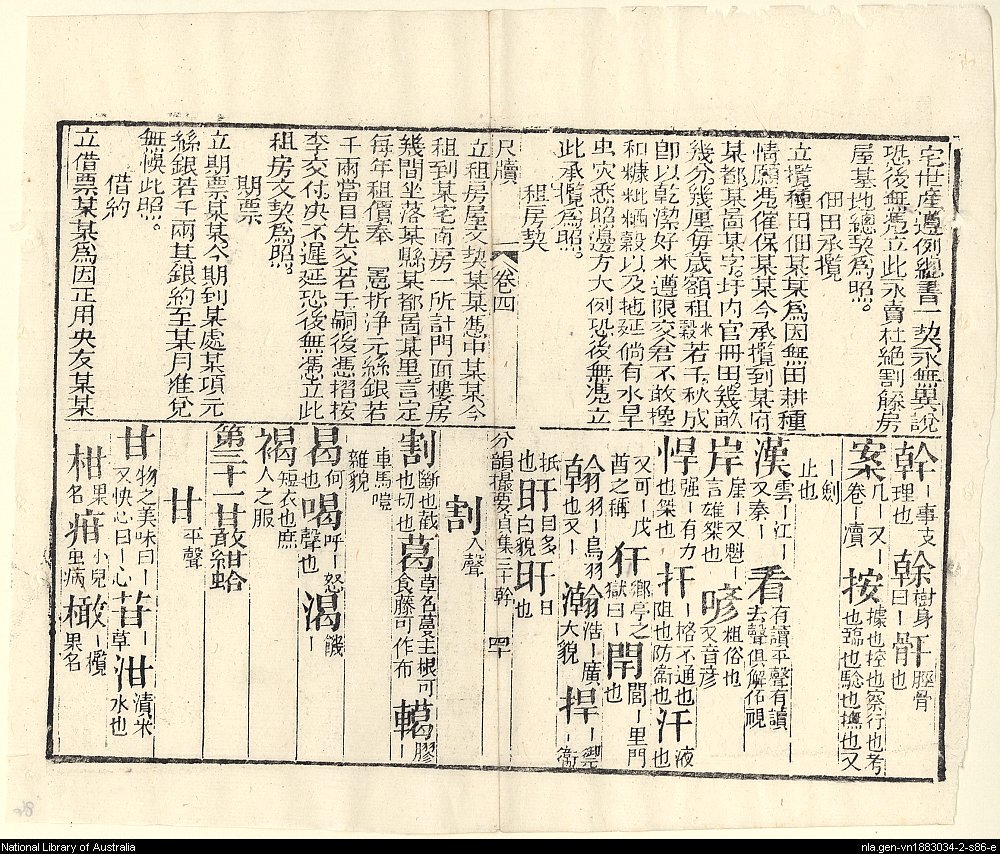 宅世産遵例總書一契永無異說
恐後無憑立此永賣杜絕割藤房
屋基地總契為照。
佃田承攬
立攬種田佃某某為因無田耕種
情願憑催保某某今承攬到某府
某都某圖某字圩內官冊田幾畝
幾分幾厘每歲額租米穀若干秋成
即以乾潔好米遵限交君不敢攙
和糠粃粞穀以及拖延倘有水旱
虫灾悉照邊方大例恐後無憑立
此承攬為照。
租房契
尺牘 卷四
立租房屋文契某某憑中某某今
租到某宅南房一所計門面樓房
幾間坐落某縣某都圖某里言定
每年租價奉 憲折浄元絲銀若
千兩當日先交若干嗣後憑摺按
季交付決不遲延恐後無憑立此
租房文契為照。
期票
立期票某某今期到某處某項元
絲銀若千兩其銀約至某月准兌
無悞此照。
借約
立借票某某為因正用央友某某
幹-事支理也 榦樹身-曰- 骭脛骨也
案几-又-卷-牘 按-據也控也察行也考也臨也驗也撫也又
-劍止也
漢雲-江-又秦- 看有讀平聲有讀去聲俱解作視
岸崖-又魁-言雄桀也 喭-粗俗也又音彥
悍-强-有力-也桀也 扞-格不通也阻也防衞也 汗液也
又可-戊酋之稱 犴鄉亭之獄曰- 閈閭-里門也
翰羽-鳥羽也又- 瀚浩-廣大貌 捍-禦-衞
扺也 盱目多白貌 旰日-也
分韻撮要貞集三十幹 四十
割入聲
割斷也截也切也 葛草名蔓生根可食藤可作布 轕轇-
車馬喧雜貌
曷何也 喝呼-怒聲也 渴饑-
褐短衣也庶人之服
第三十一甘敢紺蛤
甘平聲
甘物之美味曰-又快心曰-心 苷-草 泔清米水也
柑果名 疳小兒-里病 橄-欖果名